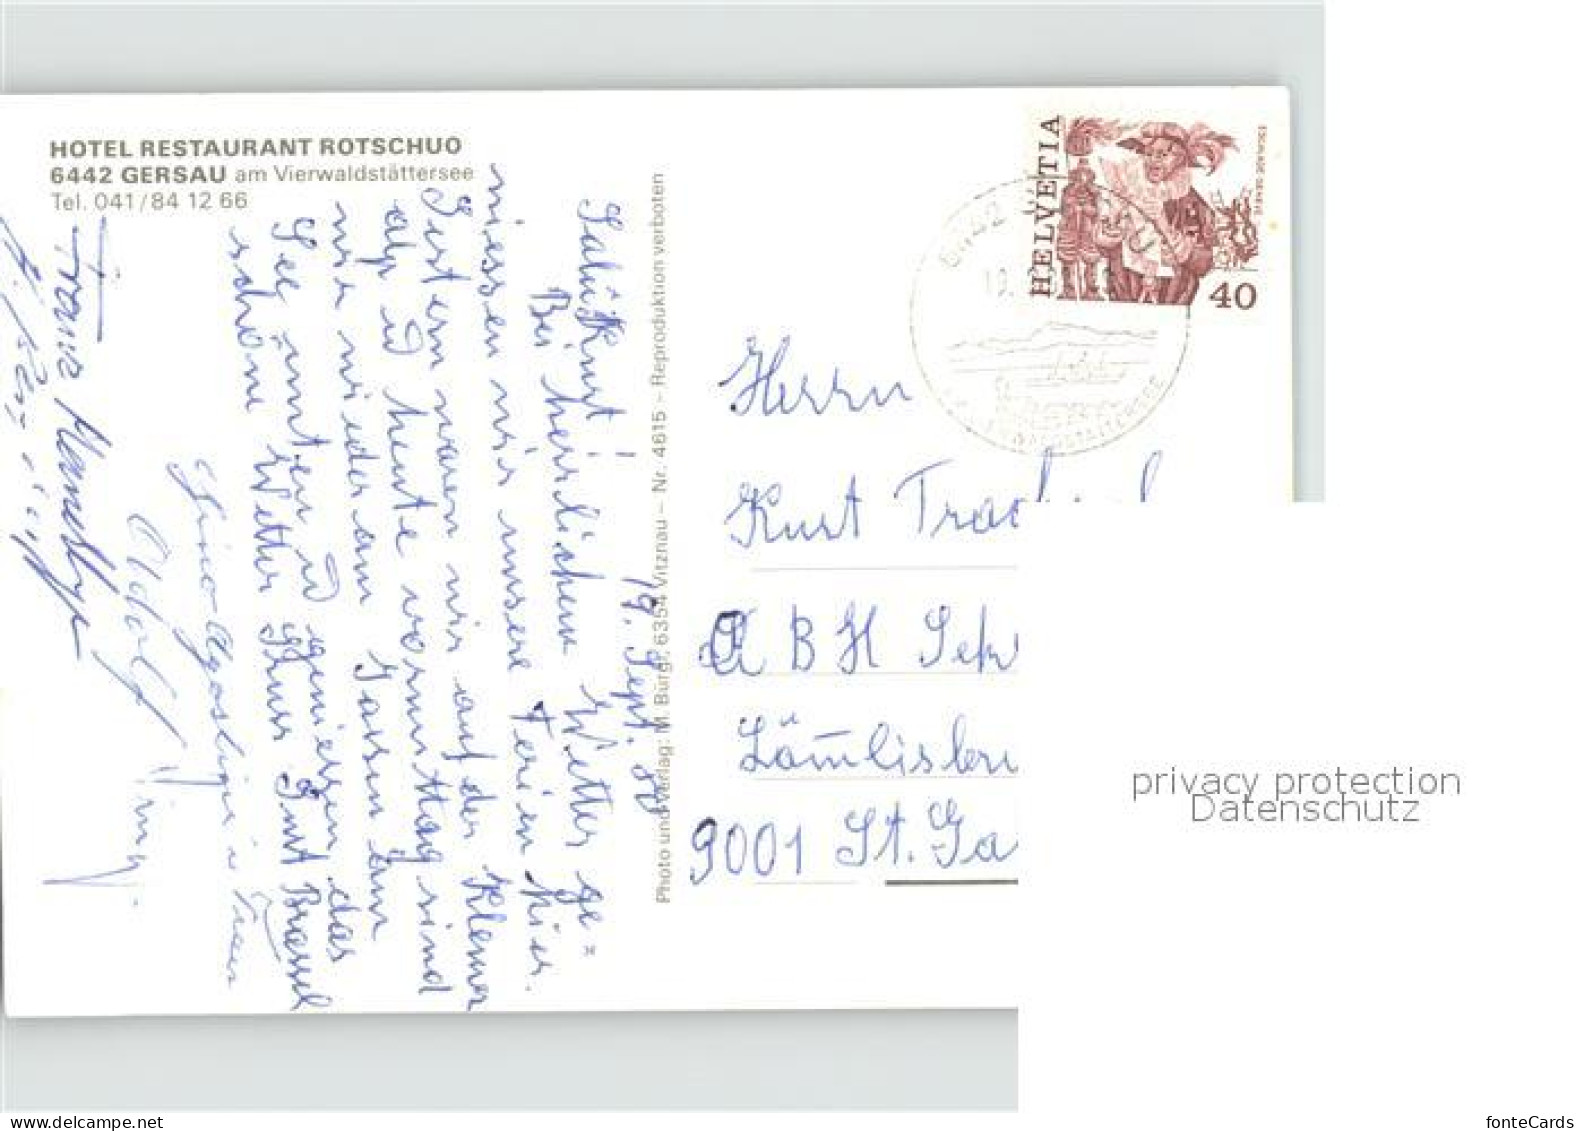 HOTEL RESTAURANT ROTSCHUO
6442 GERSAU am Vierwaldstättersee
Tel. 041/84 12 66
19. Sept. 80
Salü Kurt!
Bei herrlichem Wetter ge=
niessen wir unsere Ferien hier.
Gestern waren wir auf der Klewen
alp u heute vormittag sind
wir wieder am
See unten u geniessen das
schöne Wetter Gruss Gust Brassel
Adolf
Photo und Verlag: M. Bürgi, 6354 Vitznau – Nr. 4615 – Reproduktion verboten
HELVETIA
40
ESCALADE GENEVE
6442
19.
Herrn
Kurt
A B H Sek
Lämlisbru
9001 St. Ga
privacy protection
Datenschutz
fonteCards